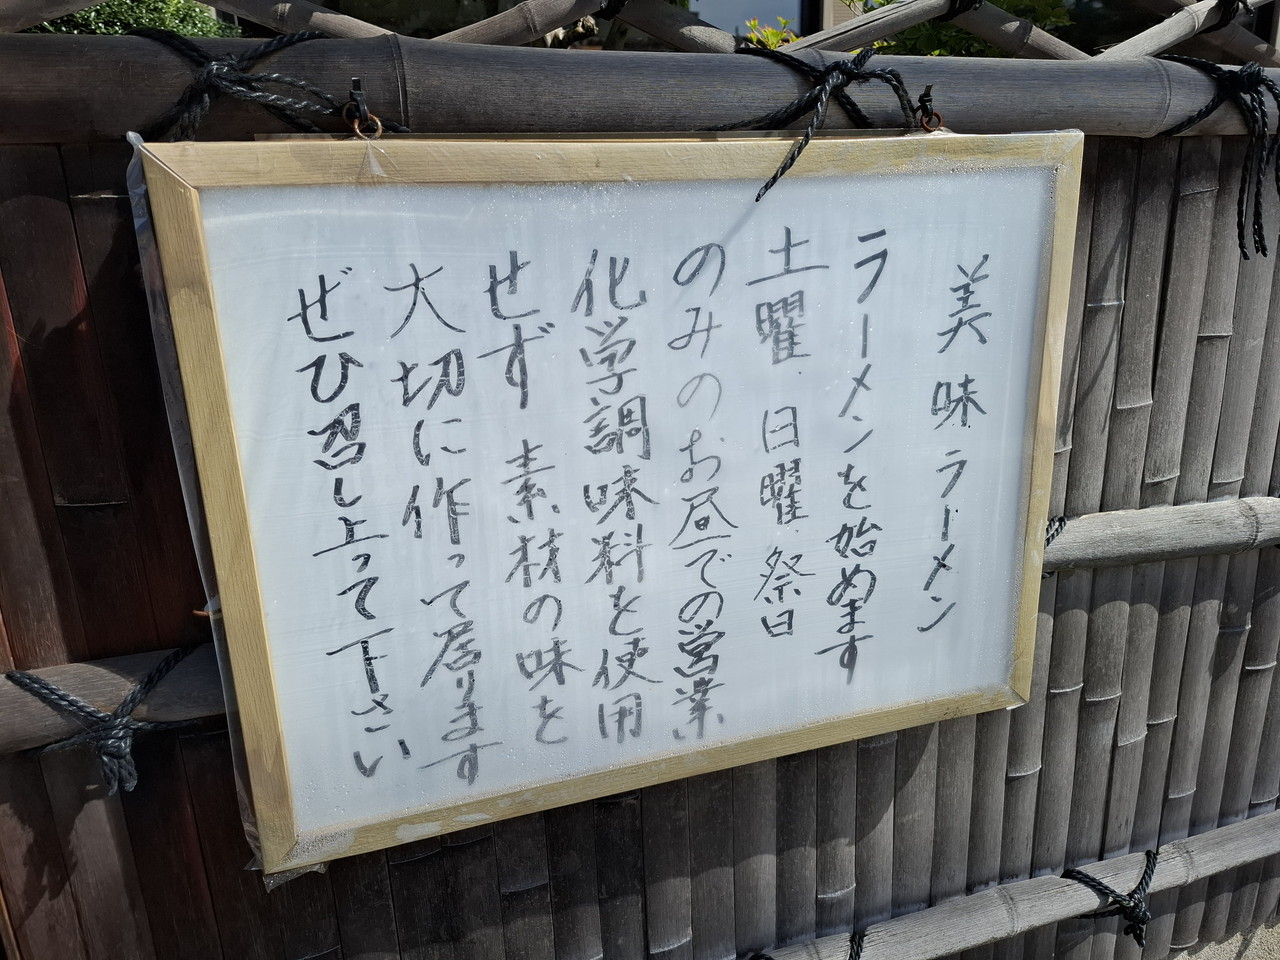 美味ラーメン
ラーメンを始めます
土曜 日曜 祭日
のみのお昼での営業
化学調味料を使用
せず 素材の味を
大切に作って居ります
ぜひ召し上って下さい